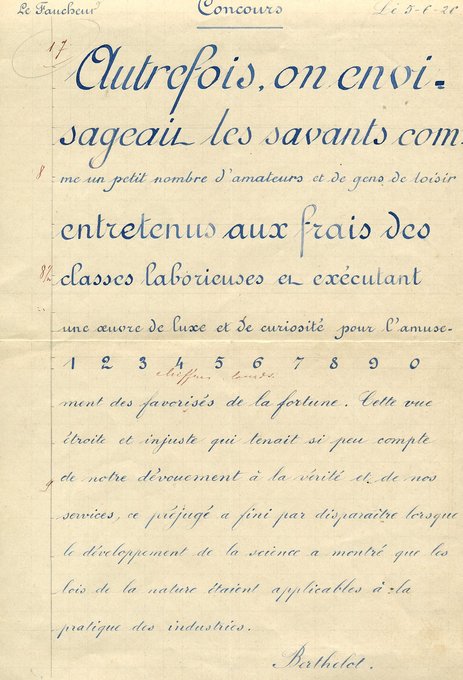 Le Faucheur Concours Le 5-6-28
17
Autrefois, on envi-
sageait les savants com-
8 me un petit nombre d'amateurs et de gens de loisir
entretenus aux frais des
8½ classes laborieuses et exécutant
une œuvre de luxe et de curiosité pour l'amuse-
1 2 3 4 5 6 7 8 9 0
chiffres lourds
ment des favorisés de la fortune. Cette vue
étroite et injuste qui tenait si peu compte
9 de notre dévouement à la vérité et de nos
services, ce préjugé a fini par disparaître lorsque
le développement de la science a montré que les
lois de la nature étaient applicables à la
pratique des industries.
Berthelot.